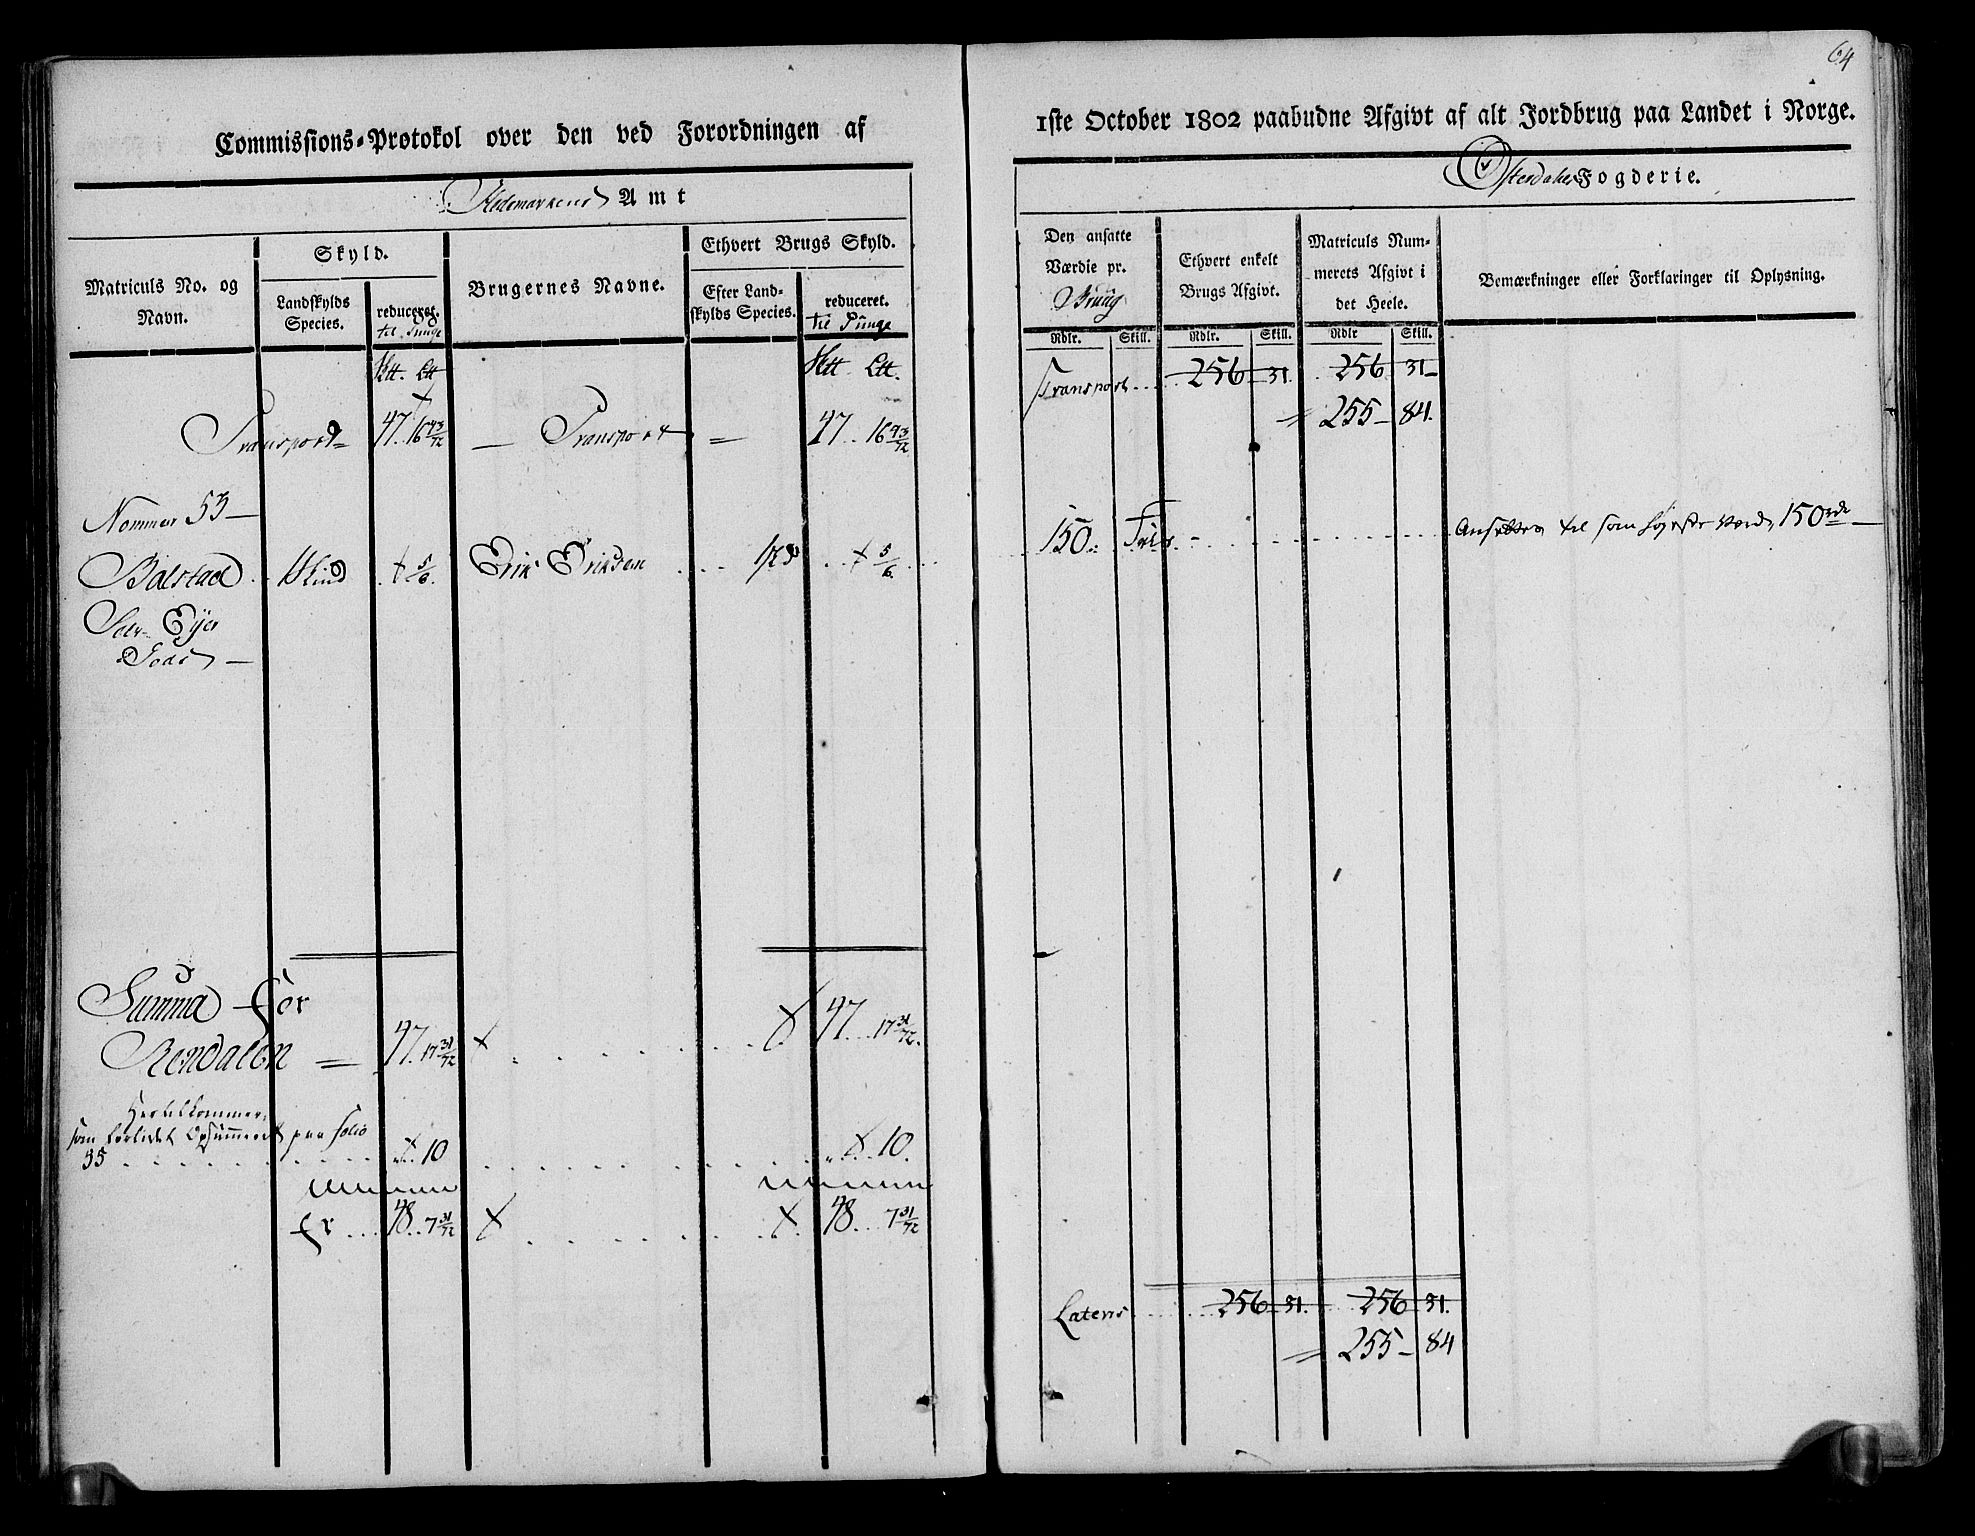 64
Commissions-Protokol over den ved Forordningen af
1ste October 1802 paabudne Afgivt af alt Jordbrug paa Landet i Norge.
Hedemarkens Amt
Østerdalens Fogderie.
Matriculs No. og Navn.
Skyld.
Landskylds Species.
reduceret. til Tunge
Brugernes Navne.
Ethvert Brugs Skyld.
Efter Landskylds Species.
reduceret. til Tunge
Den ansatte Værdie pr. Bruug
Ethvert enkelt Brugs Afgivt.
Matriculs Nummerets Afgivt i det Heele.
Bemærkninger eller Forklaringer til Oplysning.
Rdlr. Skill. Rdlr. Skill. Rdlr Skill.
Transport 47.. 16 43/72 — Transport = 47.. 16 43/72
Transport... 256 31. 256 31
255 — 84.
Nommer 53 —
Balstad .. 1 Skind .. 5/6 Erik Eriksen .... 5/6
150.. Frie
Ansættes til som høyeste Værd, 150 rdr —
Selv-Ejer
Gods —
Summa for
Rendalen = 47. 17 31/72 47... 17 31/72.
Hertilkommer
som forlidet Opsummeret paa folio
35 10 10.
Er... 48.. 7 31/72 48... 7 31/72
Latens 256 31. 256 31.
255 — 84